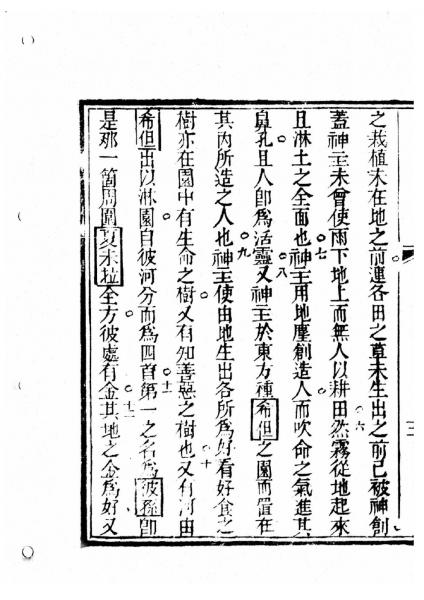 之栽植未在地之前連各田之草未生出之前已被神創
蓋神主未曾使雨下地上而無人以耕田然霧從地起來
且淋土之全面也神主用地塵創造人而吹命之氣進其
鼻孔且人卽爲活靈又神主於東方種希但之園而置在
其內所造之人也神主使由地生出各所爲好看好食之
樹亦在園中有生命之樹又有知善惡之樹也又有河由
希但出以淋園自彼河分而爲四首第一之名爲彼孫卽
是那一箇周圍夏未拉全方彼處有金其地之金爲好又
六
七
八
九
十
十一
十二